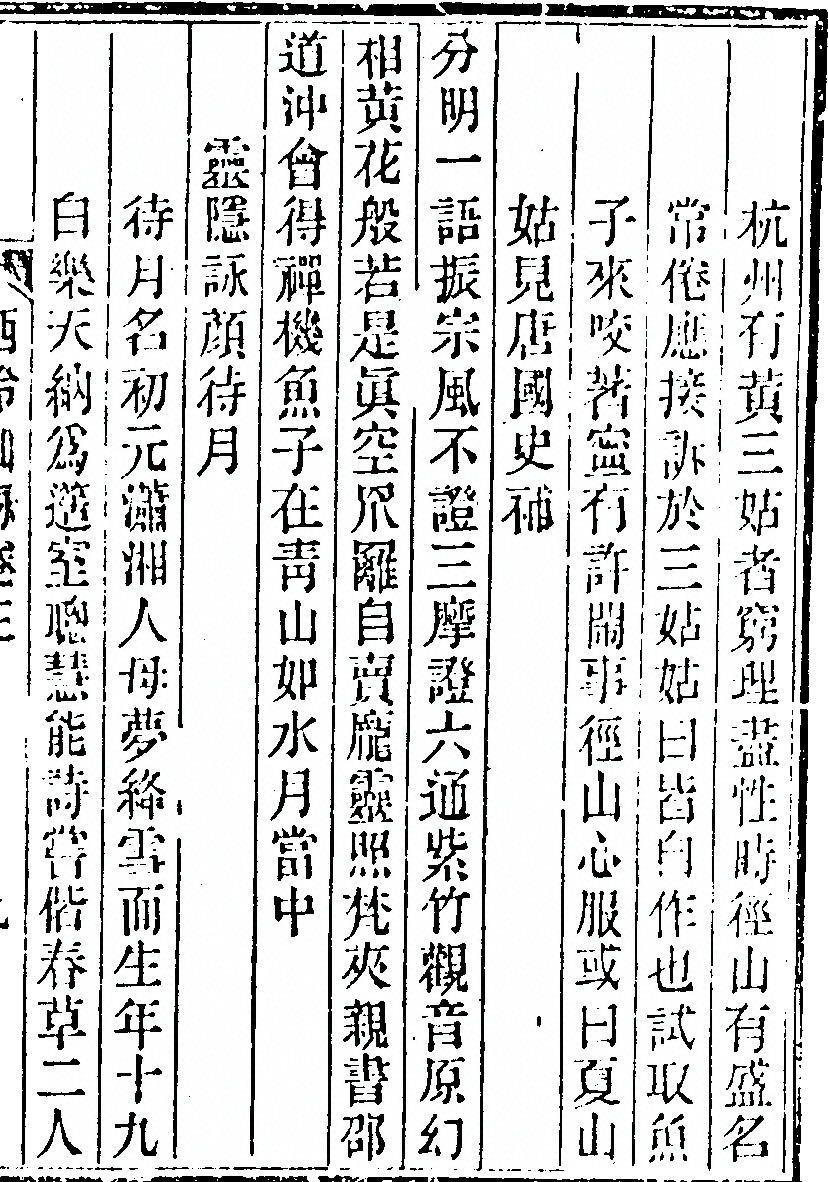 杭州有黃三姑者窮理盡性時徑山有盛名
常倦應接訴於三姑姑曰皆自作也試取魚
子來咬著寍有許鬧事徑山心服或曰夏山
姑見唐國史補
分明一語振宗風不證三摩證六通紫竹觀音原幻
相黃花般若是眞空爪籬自賣龐靈照梵夾親書邵
道沖會得禪機魚子在靑山如水月當中
靈隱詠顔待月
待月名初元瀟湘人母夢絳雪而生年十九
白樂天納爲簉室聰慧能詩嘗偕春草二人